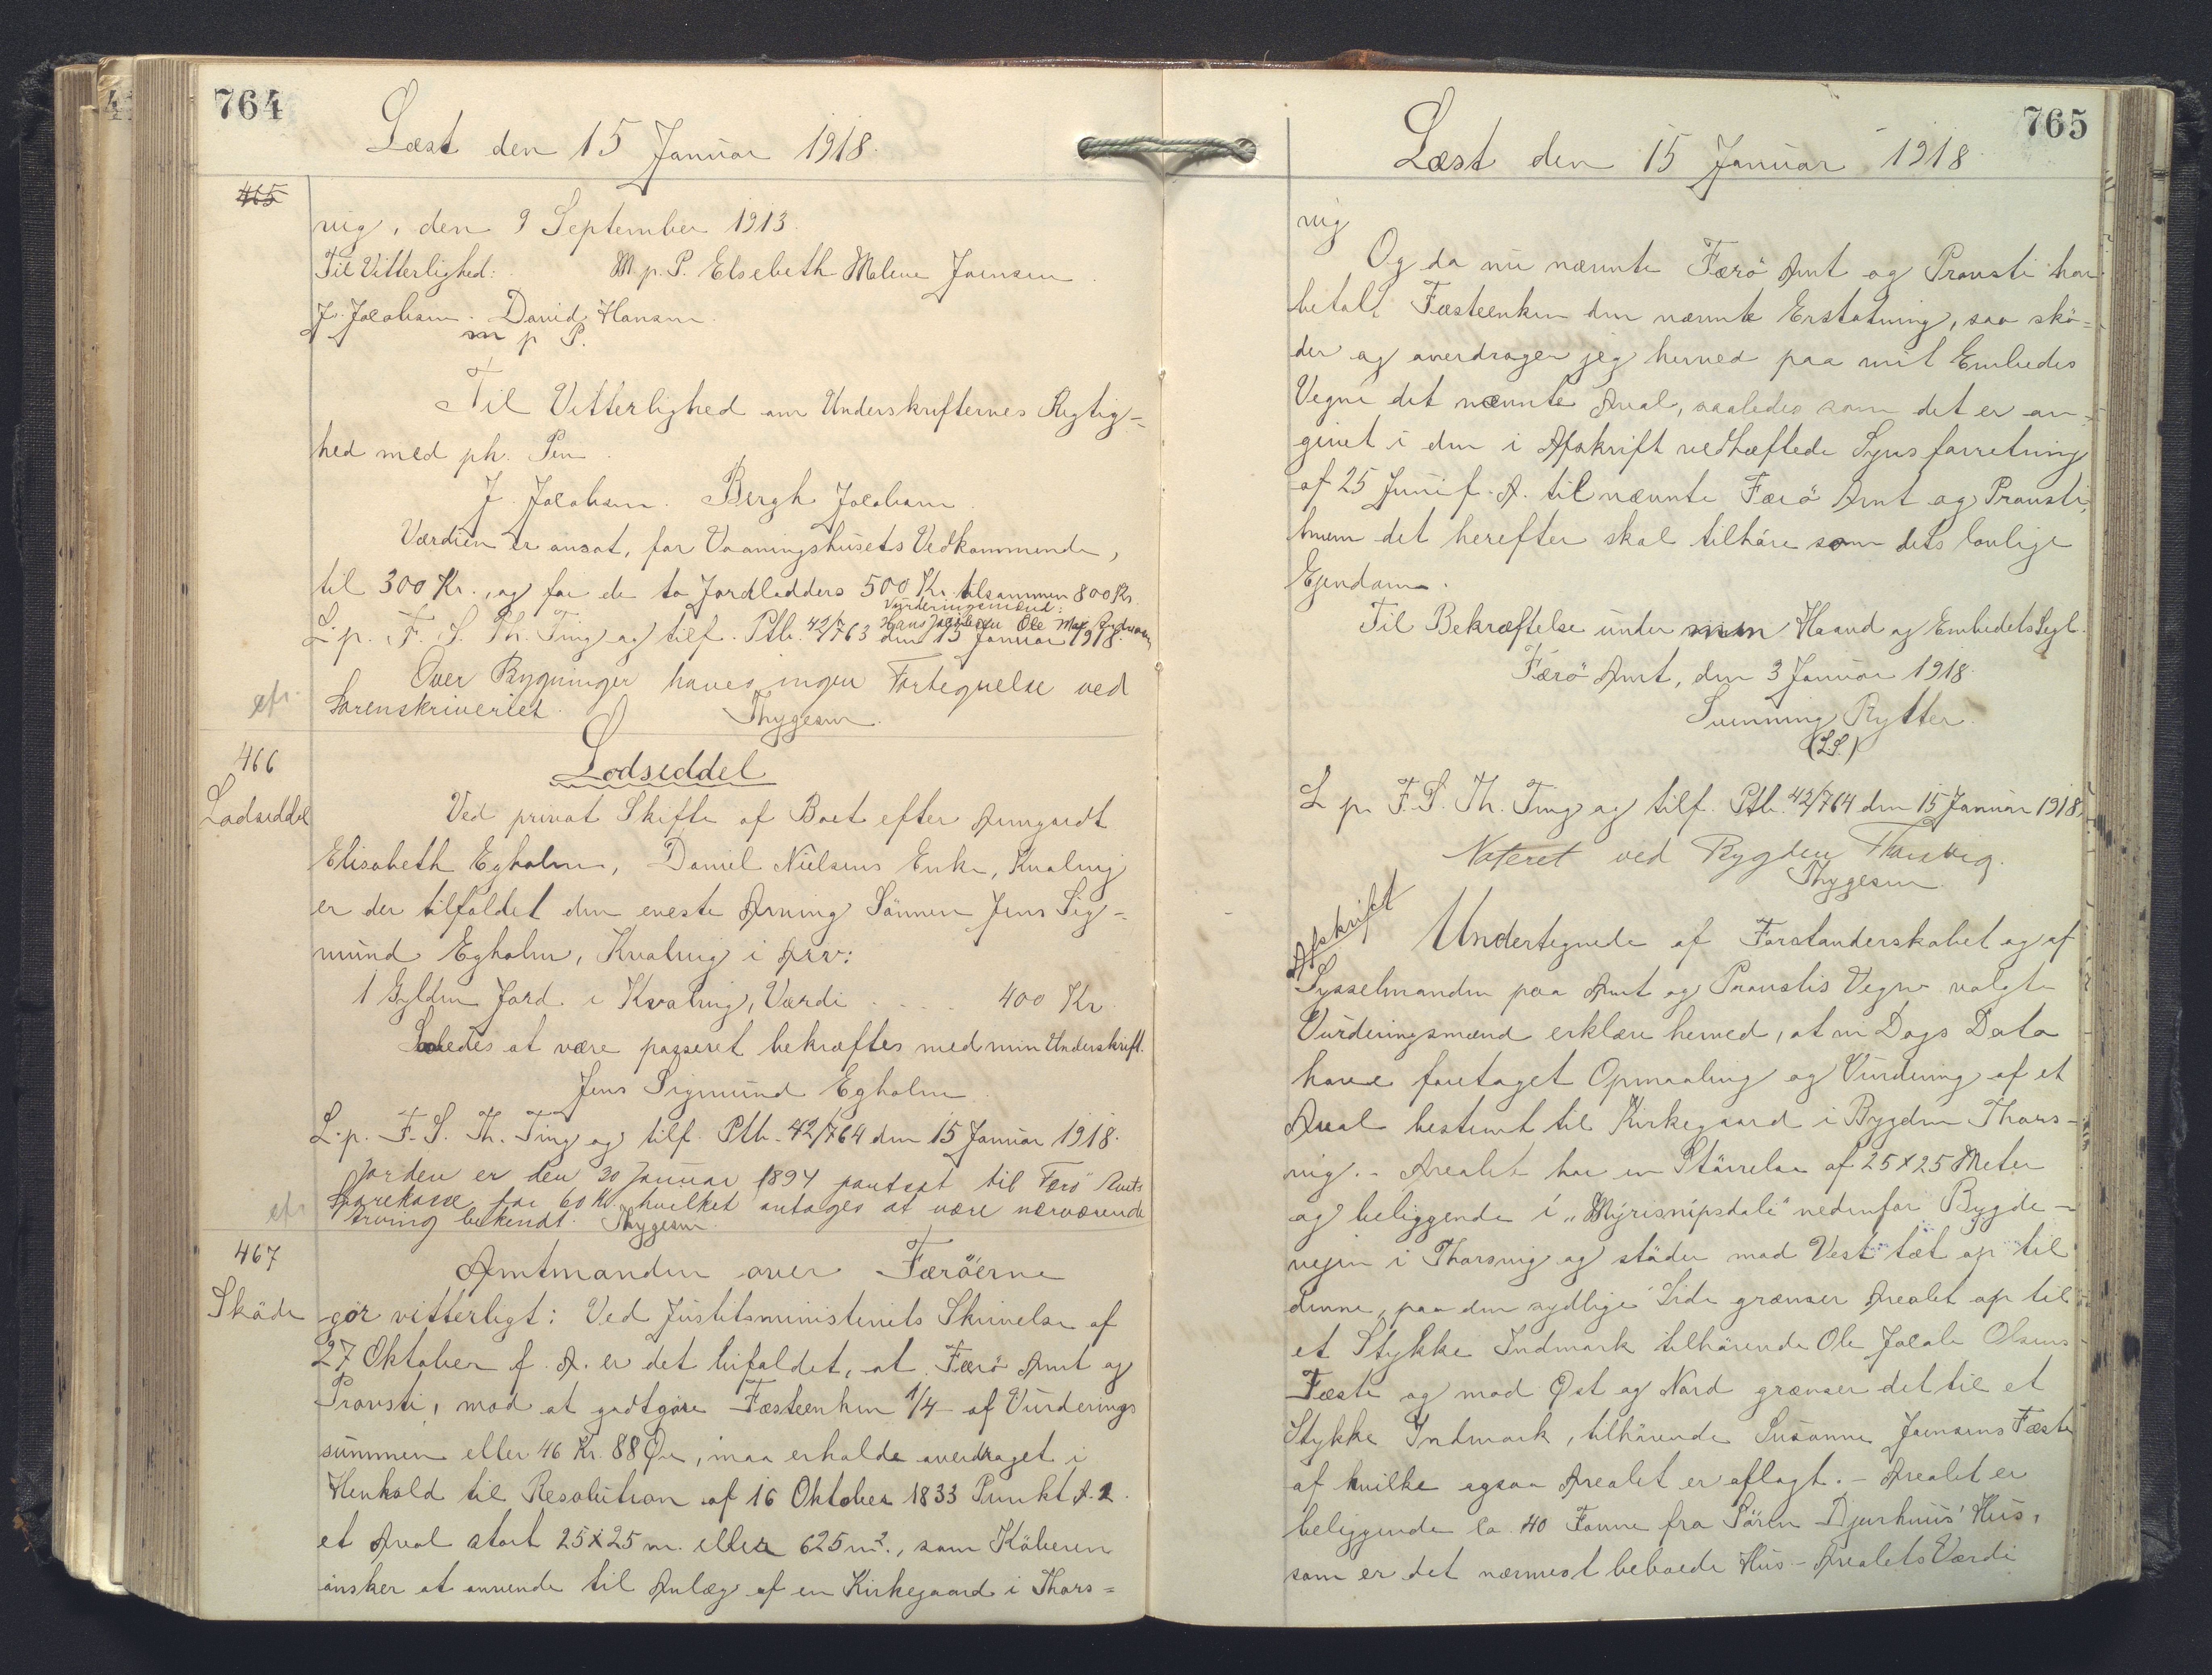 764
Læst den 15 Januar 1918.
465
vig, den 9 September 1913.
Til Vitterlighed: M.p.P. Elsebeth Malene Joensen.
J. Jacobsen. David Hansen
m p P.
Til Vitterlighed om Underskrifternes Rigtig-
hed med ph. Pen.
J. Jacobsen. Bergh Jacobsen.
Værdien er ansat, for Vaaningshusets Vedkommende,
til 300 Kr., og for de to Jordlodders 500 Kr. tilsammen 800 Kr.
Vurderingsmænd:
Hans Jacobsen Ole Mar. Andreasen
L. p. F. S. Th. Ting og tilf. Ptb. 42/763 den 15 Januar 1918.
Over Bygninger haves ingen Fortegnelse ved
Sorenskriveriet. Thygesen.
efr.
466
Lodseddel
Lodseddel
Ved privat Skifte af Boet efter Armgardt
Elisabeth Egholm, Daniel Nielsens Enke, Kvalvig
er der tilfaldet den eneste Arving Sønnen Jens Sig-
mund Egholm, Kvalvig i Arv:
1 Gylden Jord i Kvalvig, Værdi . . . . 400 Kr.
Saaledes at være passeret bekræftes med min Underskrift.
Jens Sigmund Egholm.
L. p. F. S. Th. Ting og tilf. Ptb. 42/764 den 15 Januar 1918.
Jorden er den 30 Januar 1894 pantsat til Færö Amts
Sparekasse for 60 Kr. hvilket antages at være nærværende
Arving bekendt. Thygesen
efr
467
Sköde
Amtmanden over Færöerne
gör vitterligt: Ved Justitsministeriets Skrivelse af
27 Oktober f. A. er det bifaldet, at Færö Amt og
Provsti, mod at godtgöre Fæsteenken 1/4 af Vurderings
summen eller 46 Kr. 88 Øre, maa erholde overdraget i
Henhold til Resolution af 16 Oktober 1833 Punkt A. 2.
et Areal stort 25x25 m. eller 625 m²., som Köberen
önsker at anvende til Anlæg af en Kirkegaard i Thors=
765
Læst den 15 Januar 1918.
vig
Og da nu nævnte Færö Amt og Provsti har
betalt Fæsteenken den nævnte Erstatning, saa skö=
der og overdrager jeg herved paa mit Embedes
Vegne det nævnte Areal, saaledes som det er an-
givet i den i Afskrift vedhæftede Synsforretning
af 25 Juni f. A. til nævnte Færö Amt og Provsti,
hvem det herefter skal tilhöre som dets lovlige
Ejendom.
Til Bekræftelse under min Haand og Embedets Segl.
Færö Amt, den 3 Januar 1918.
Svenning Rytter.
(L.S.)
L. p. F. S. Th. Ting og tilf. Ptb. 42/764 den 15 Januar 1918.
Noteret ved Bygden Thorsvig.
Thygesen
Afskrift
Undertegnede af Forstanderskabet og af
Sysselmanden paa Amt og Provstis Vegne valgte
Vurderingsmænd erklære herved, at vi Dags Dato
have foretaget Opmaaling og Vurdering af et
Areal bestemt til Kirkegaard i Bygden Thors-
vig. - Arealet har en Störrelse af 25x25 Meter
og beliggende i "Mýrisnípsdali" nedenfor Bygde-
vejen i Thorsvig og stöder mod Vest tæt op til
denne, paa den sydlige Side grænser Arealet op til
et Stykke Indmark tilhörende Ole Jacob Olsens
Fæste og mod Øst og Nord grænser det til et
Stykke Indmark, tilhörende Susanne Joensens Fæste
af hvilke ogsaa Arealet er aflagt. - Arealet er
beliggende ca. 40 Favne fra Sören Djurhuus' Hus,
som er det nærmest beboede Hus - Arealets Værdi